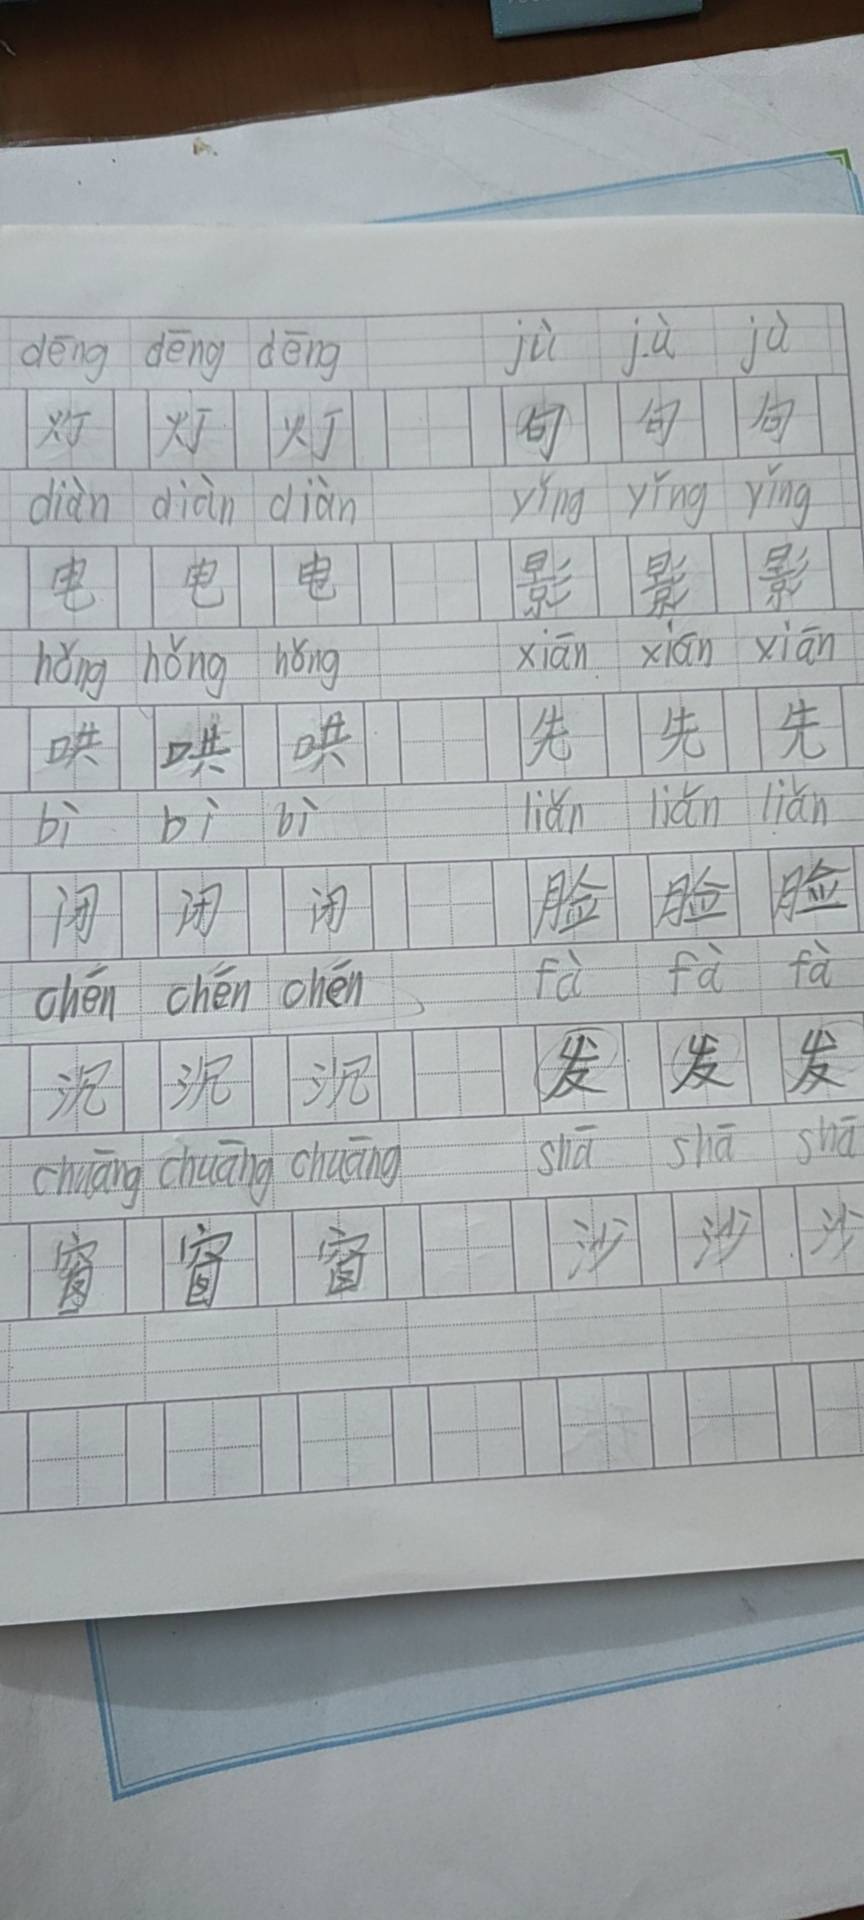 dēng dēng dēng jù jù jù
灯 灯 灯 句 句 句
diàn diàn diàn yǐng yǐng yǐng
电 电 电 影 影 影
hǒng hǒng hǒng xiān xiān xiān
哄 哄 哄 先 先 先
bì bì bì liǎn liǎn liǎn
闭 闭 闭 脸 脸 脸
chén chén chén fà fà fà
沉 沉 沉 发 发 发
chuāng chuāng chuāng shā shā shā
窗 窗 窗 沙 沙 沙